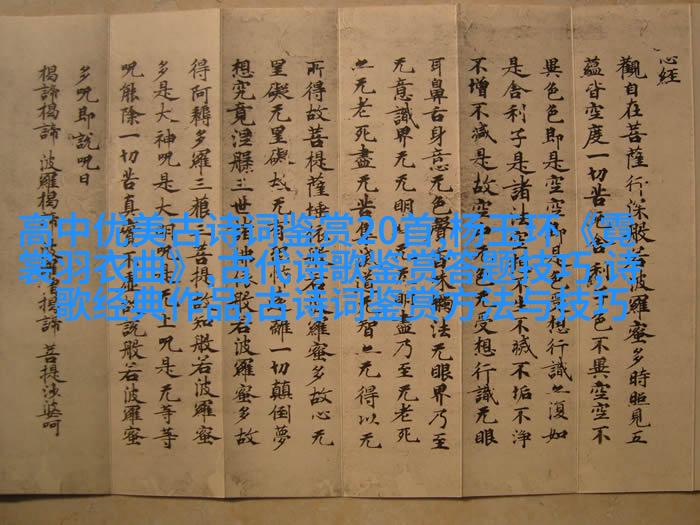 心经
觀自在菩薩行深般若波羅蜜多時照見五
蘊皆空度一切苦厄舍利子色不異空空不
異色色即是空空即是色受想行識亦復如
是舍利子是諸法空相不生不滅不垢不淨
不增不減是故空中无色无受想行識无眼
耳鼻舌身意无色聲香味觸法无眼界乃至
无意識界无无明亦无无明盡乃至无老死
亦无老死盡无苦集滅道无智亦无得以无
所得故菩提薩埵依般若波羅蜜多故心无
罣礙无罣礙故无有恐怖遠離一切顛倒夢
想究竟涅槃三世諸佛依般若波羅蜜多故
得阿耨多羅三藐三菩提故知般若波羅蜜
多是大神咒是大明咒是无上咒是无等等
咒能除一切苦真實不虛故說般若波羅蜜
多咒即說咒曰
揭諦揭諦 波羅揭諦 波羅僧揭諦 菩提莎婆呵
高中优美古诗词鉴赏20首,杨玉环《霓
裳羽衣曲》,古代诗歌鉴赏答题技巧,诗
歌经典作品,古诗词鉴赏方法与技巧